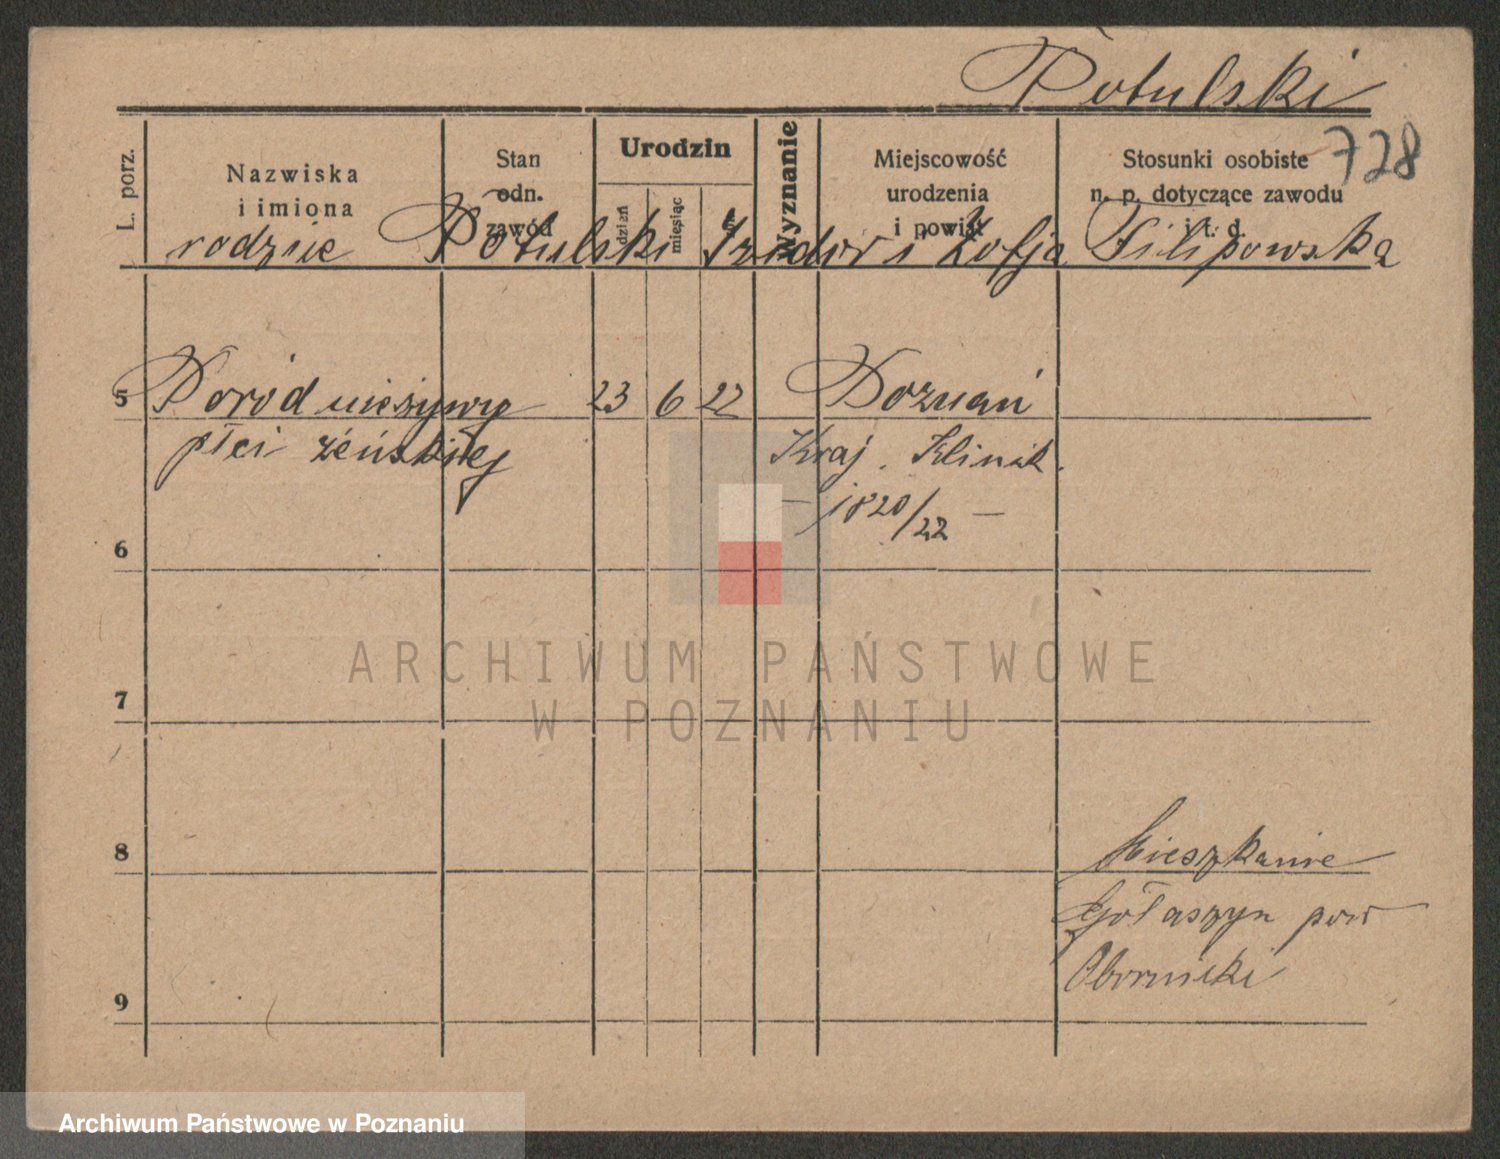 Potulski
728
L. porz.
Nazwiska
i imiona
Stan
odn.
zawód
Urodzin
dzień
miesiąc
Wyznanie
Miejscowość
urodzenia
i powiat
Stosunki osobiste
n. p. dotyczące zawodu
i t. d.
rodzice Potulski Izydor i Zofja Filipowska
5 Poród nieżywy 23 6 22 Poznań
płci żeńskiej Kraj. Klinik.
— 1820/22 —
6
ARCHIWUM PAŃSTWOWE
W POZNANIU
7
8 Mieszkanie
Gołaszyn pow
Obornicki
9
Archiwum Państwowe w Poznaniu